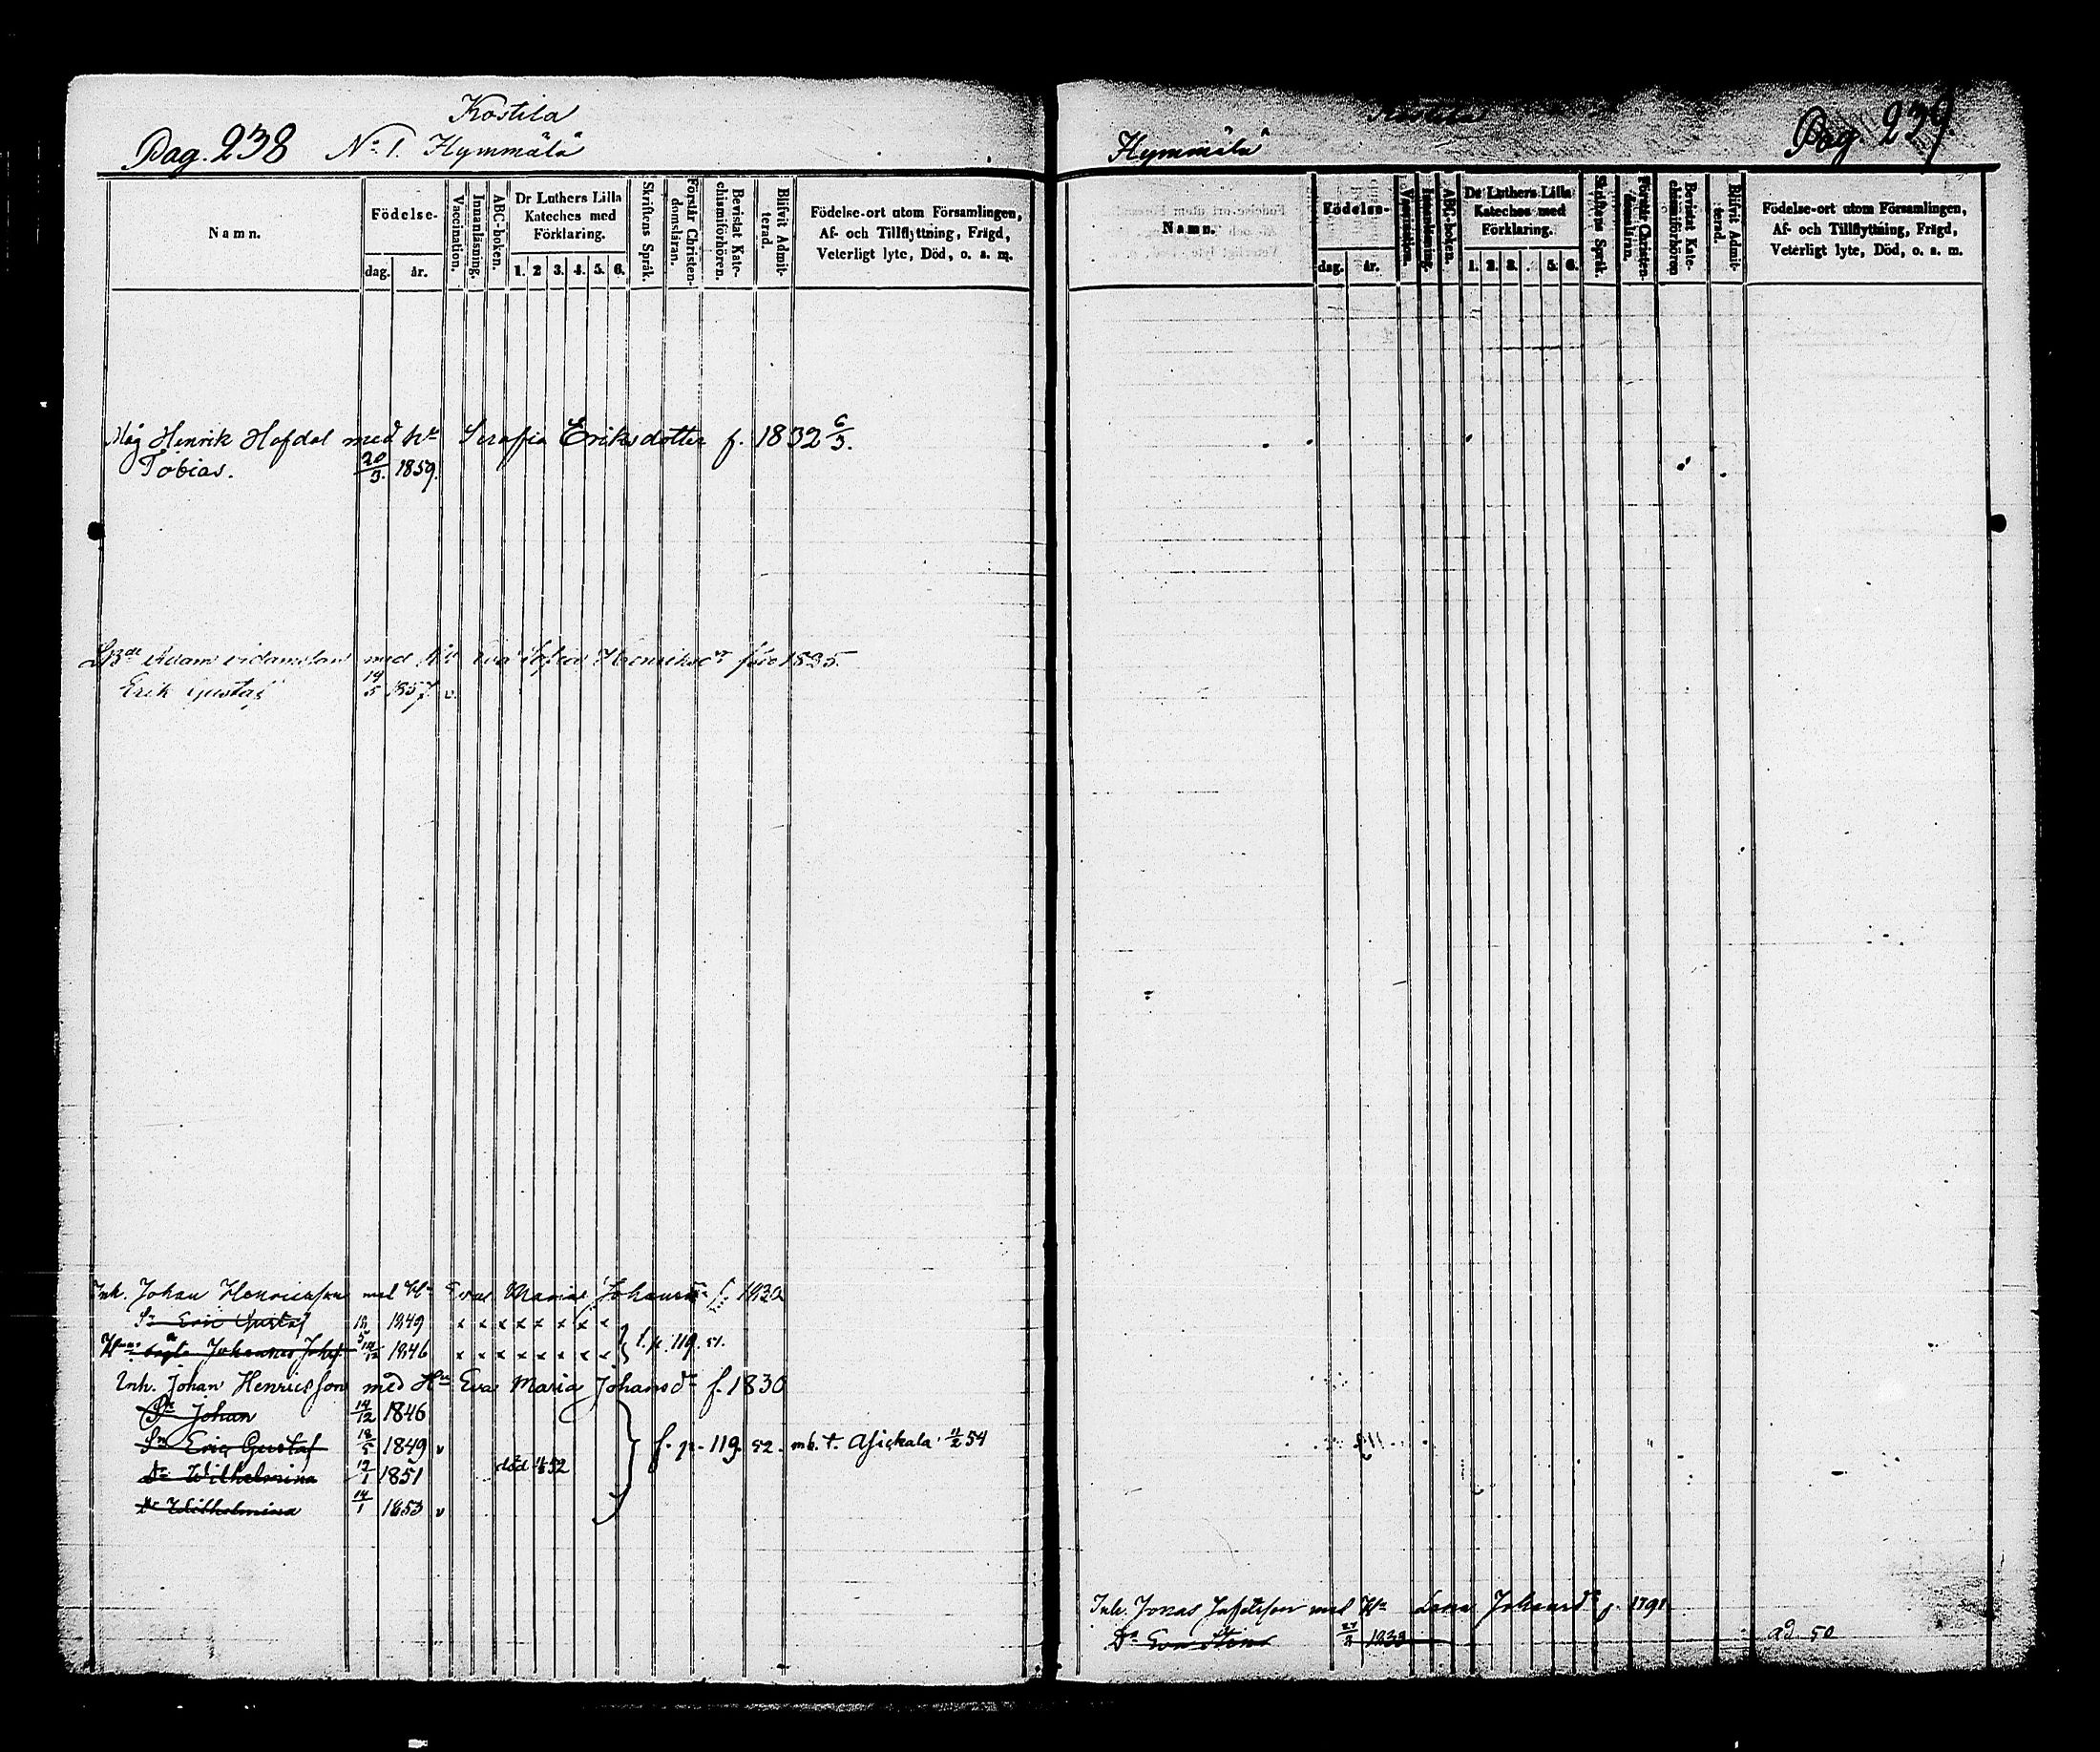 Kostila
Pag. 238 No 1. Hymmälä
Namn.
Födelse-
dag. år.
Vaccination.
Innanläsning.
ABC-boken.
Dr Luthers Lilla
Kateches med
Förklaring.
1. 2 3. 4. 5. 6.
Skriftens Språk.
Förstår Christen-
domsläran.
Bevistat Kate-
chismiförhören.
Blifvit Admit-
terad.
Födelse-ort utom Församlingen,
Af- och Tillflyttning, Frägd,
Veterligt lyte, Död, o. s. m.
Måg Henrik Hofdal med hu Serafia Eriksdotter f. 1832 6/3.
Tobias. 20/3. 1859.
Adam med Sofia f 1835.
Erik Gustaf 19/5 1857. v.
Inh. Johan Henricsson med Hu Eva Maria Johansdr f. 1830
Sn Eric Gustaf 18/5 1849 x x x x x x x x
Johannes Johs. 14/12 1846 x x x x x x x x f. p. 119. 51.
Inh. Johan Henricsson med Hu Eva Maria Johansdr f. 1830
Sn Johan 14/12 1846
Sn Eric Gustaf 18/5 1849 v f. p. 119. 52. mb. t. Asickala 11/2 54
Dr Wilhelmina 12/1 1851 död 4/5 52
Dr Wilhelmina 14/1 1853 v
Kostila
Hymmälä Pag. 239.
Namn.
Födelse-
dag. år.
Vaccination.
Innanläsning.
ABC-boken.
Dr Luthers Lilla
Kateches med
Förklaring.
1. 2. 3. 5. 6.
Skriftens Språk.
Förstår Christen-
domsläran.
Bevistat Kate-
chismiförhören
Blifvit Admit-
terad.
Födelse-ort utom Församlingen,
Af- och Tillflyttning, Frägd,
Veterligt lyte, Död, o. s. m.
Inh. Jonas med Hu Lena Johansdr f. 1791
Dr Eva Stina 1833 ad. 50